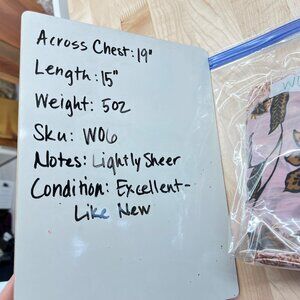 Across Chest: 19"
Length: 15"
Weight: 5oz
Sku: W06
Notes: Lightly Sheer
Condition: Excellent-
Like New